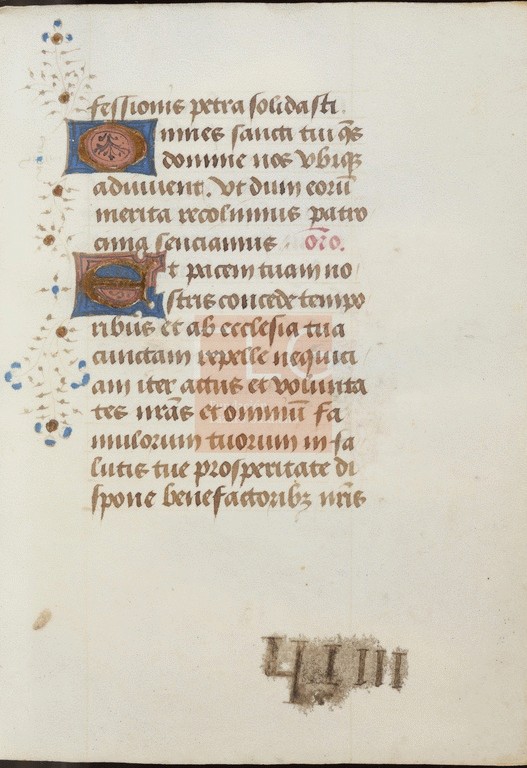 fessionis petra solidasti.
Omnes sancti tui q̃s
domine nos vbiq̧
adiuuent. Vt dum eorũ
merita recolimus patro
cinia senciamus oro.
Et pacem tuam no
stris concede tempo
ribus et ab ecclesia tua
cunctam repelle nequici
am iter actus et volunta
tes nr̃as et omniũ fa
mulorum tuorum in sa
lutis tue prosperitate di
spone benefactoribꝫ nr̃is